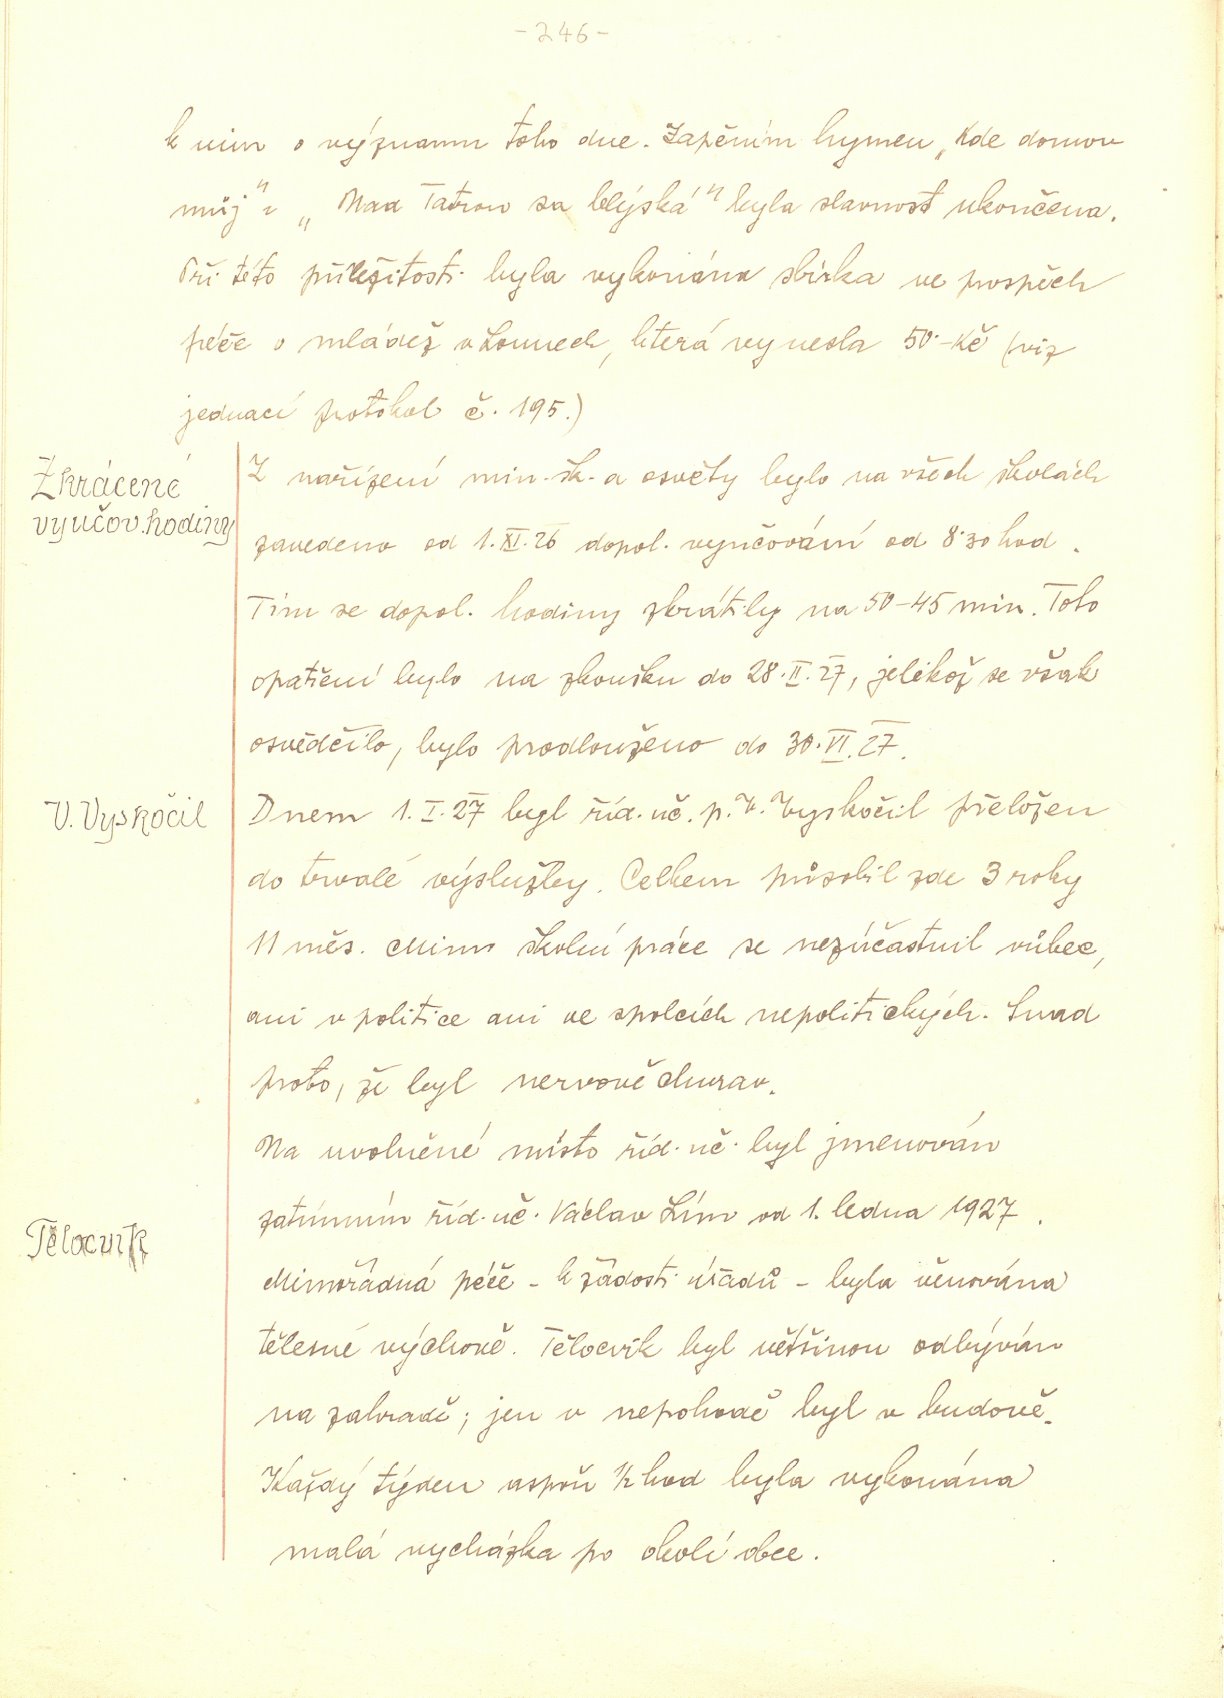 - 246 -
k nim o významu toho dne. Zapěním hymen „Kde domov
můj" i „Nad Tatrou sa blýská" byla slavnost ukončena.
Při této příležitosti byla vykonána sbírka ve prospěch
péče o mládež v Lounech, která vynesla 50·-Kč (viz
jednací protokol č. 195.)
Zkrácené
vyučov. hodiny
Z nařízení min. šk. a osvěty bylo na všech školách
zavedeno od 1. XI. 26 dopol. vyučování od 8·30 hod.
Tím se dopol. hodiny zkrátily na 50-45 min. Toto
opatření bylo na zkoušku do 28. II. 27, jelikož se však
osvědčilo, bylo prodlouženo do 30. VI. 27.
V. Vyskočil
Dnem 1. I. 27 byl říd. uč. p. V. Vyskočil přeložen
do trvalé výslužby. Celkem působil zde 3 roky
11 měs. Mimo školní práce se nezúčastnil vůbec,
ani v politice ani ve spolcích nepolitických. Snad
proto, že byl nervově churav.
Na uvolněné místo říd. uč. byl jmenován
zatímním říd. uč. Václav Lím od 1. ledna 1927.
Tělocvik
Mimořádná péče - k žádosti úřadů - byla věnována
tělesné výchově. Tělocvik byl většinou odbýván
na zahradě; jen v nepohodě byl v budově.
Každý týden aspoň ½ hod byla vykonána
malá vycházka po okolí obce.